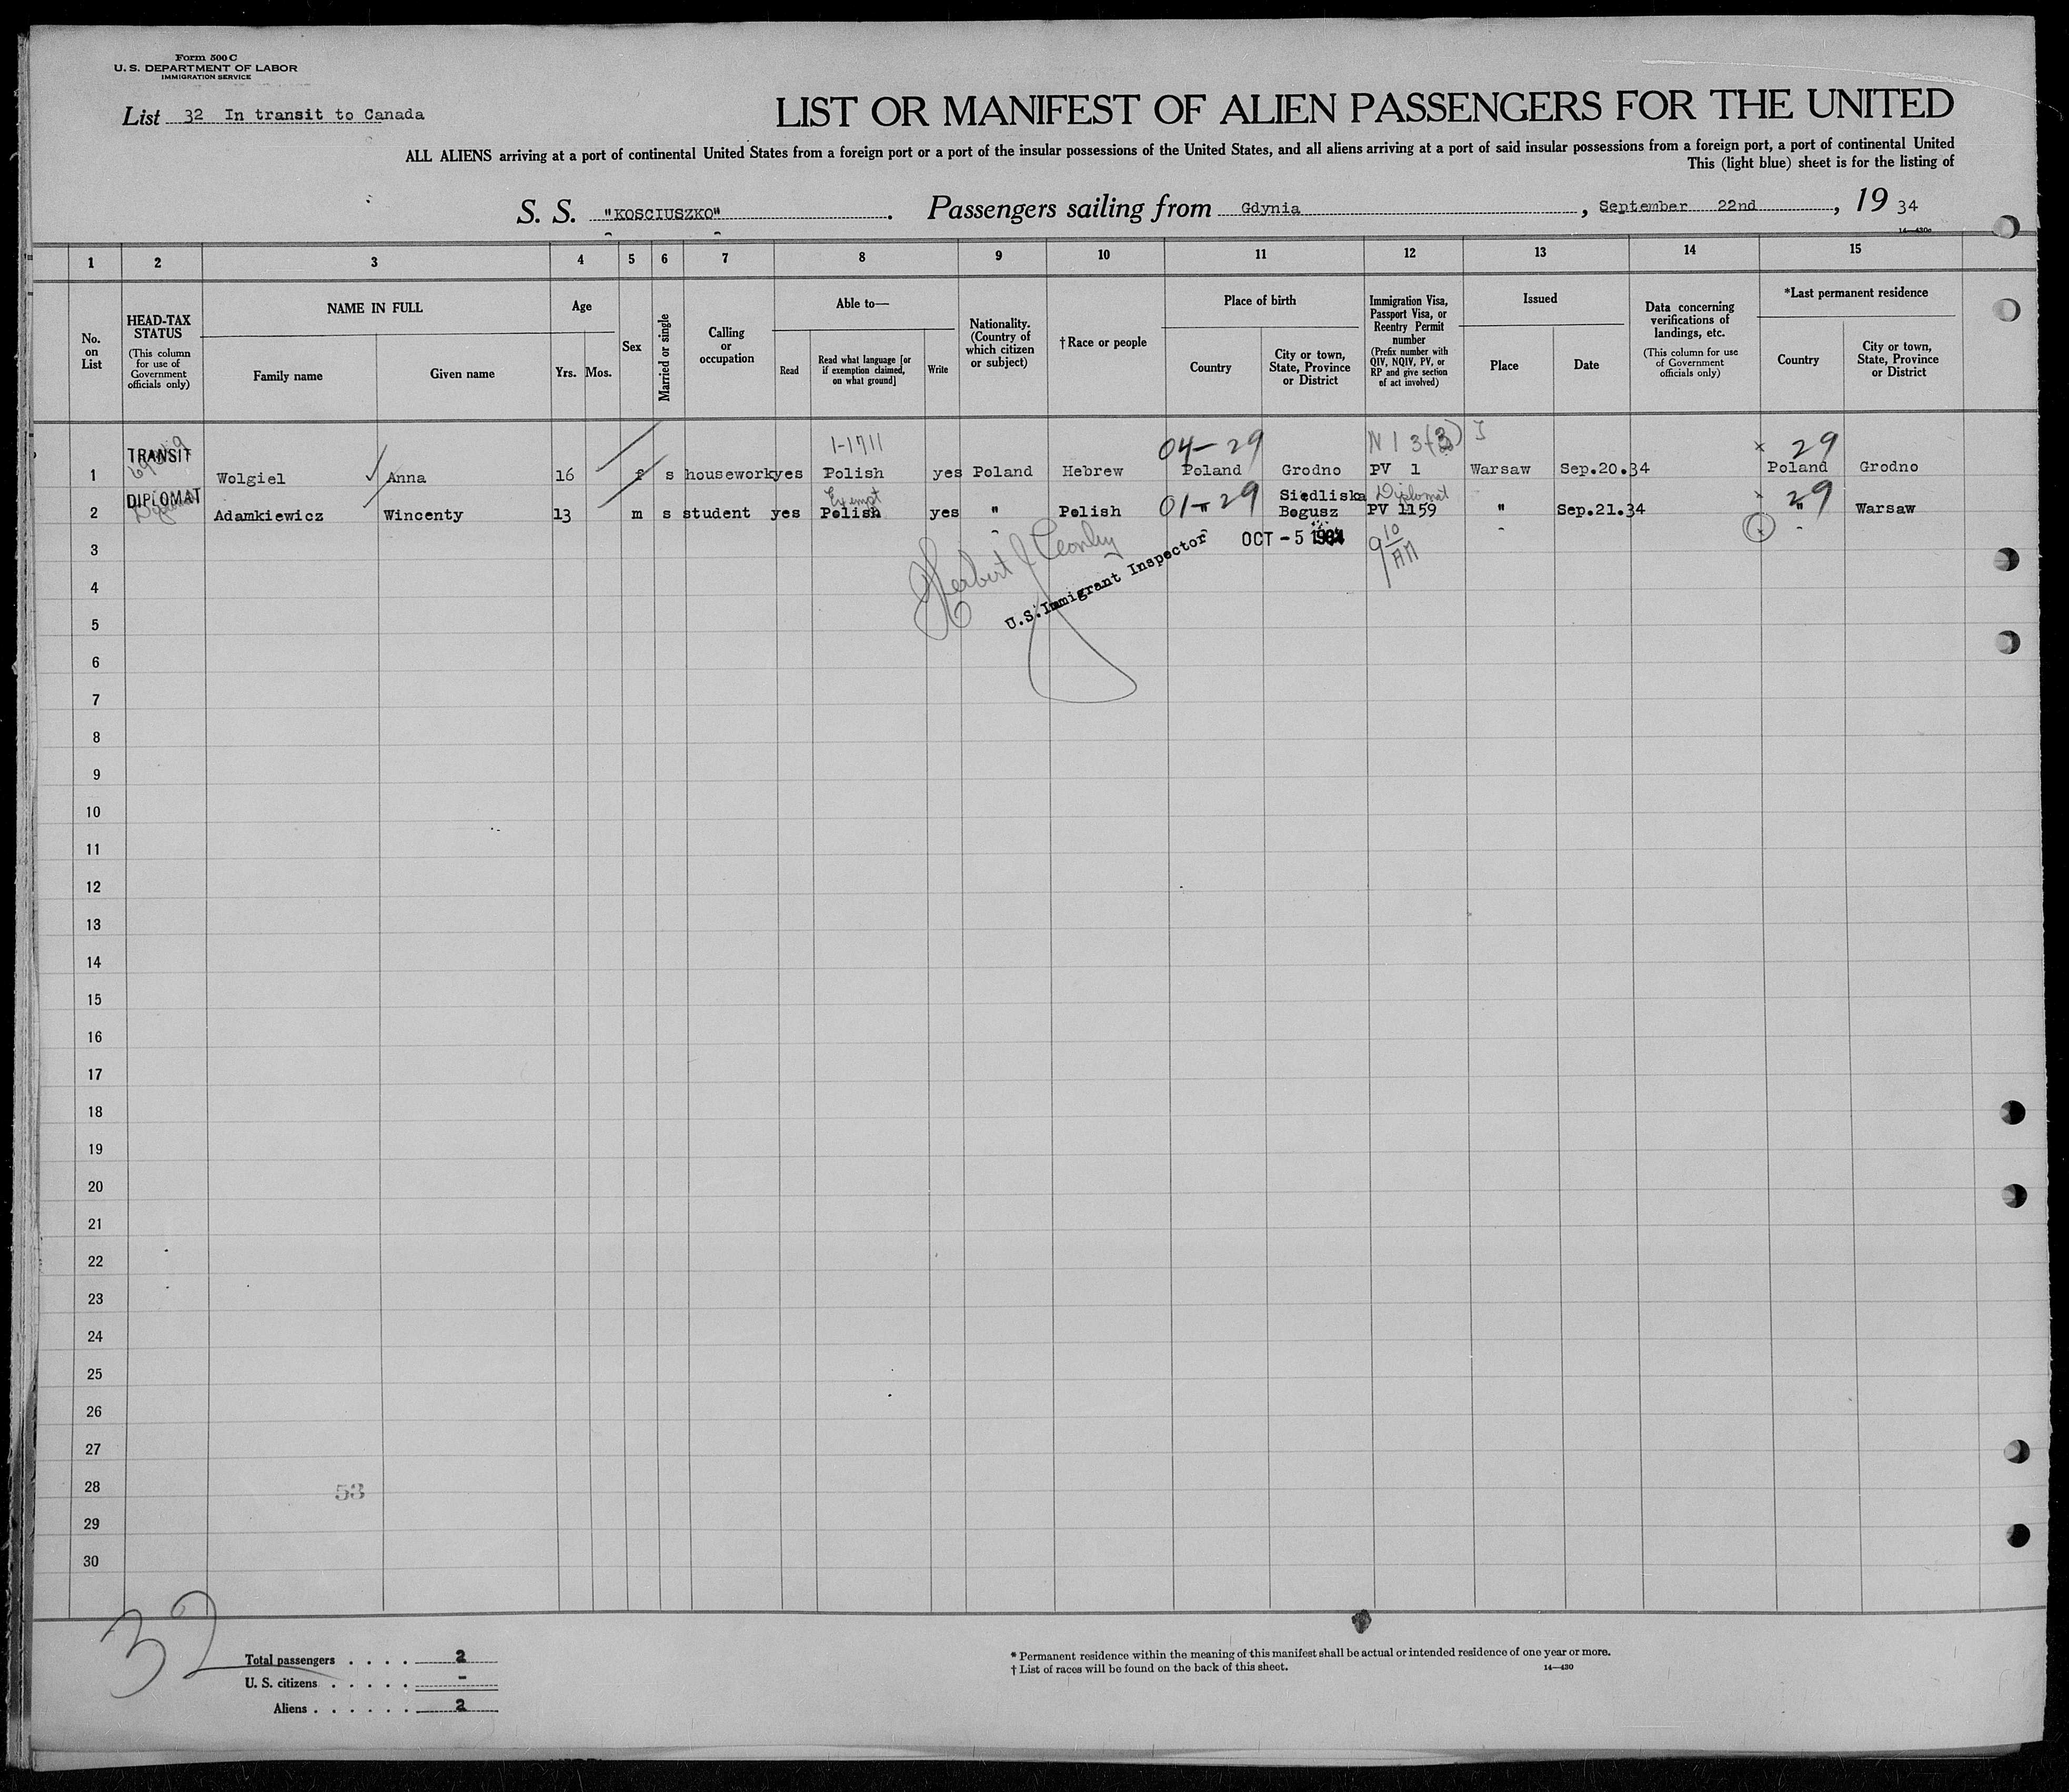 Form 500 C
U. S. DEPARTMENT OF LABOR
IMMIGRATION SERVICE
List 32 In transit to Canada
LIST OR MANIFEST OF ALIEN PASSENGERS FOR THE UNITED
ALL ALIENS arriving at a port of continental United States from a foreign port or a port of the insular possessions of the United States, and all aliens arriving at a port of said insular possessions from a foreign port, a port of continental United
This (light blue) sheet is for the listing of
S. S. "KOSCIUSZKO". Passengers sailing from Gdynia, September 22nd, 19 34
14—430c
1 2 3 4 5 6 7 8 9 10 11 12 13 14 15
No. on List
HEAD-TAX STATUS
(This column for use of Government officials only)
NAME IN FULL
Family name
Given name
Age
Yrs. Mos.
Sex
Married or single
Calling or occupation
Able to—
Read
Read what language [or if exemption claimed, on what ground]
Write
Nationality. (Country of which citizen or subject)
†Race or people
Place of birth
Country
City or town, State, Province or District
Immigration Visa, Passport Visa, or Reentry Permit number
(Prefix number with QIV, NQIV, PV, or RP and give section of act involved)
Issued
Place
Date
Data concerning verifications of landings, etc.
(This column for use of Government officials only)
*Last permanent residence
Country
City or town, State, Province or District
TRANSIT 1-1711 04-29 N 1 3(3) 29
1 Wolgiel Anna 16 f s housework yes Polish yes Poland Hebrew Poland Grodno PV 1 Warsaw Sep.20.34 Poland Grodno
DIPLOMAT Exempt 01-29 Siedliska Diplomat 29
2 Adamkiewicz Wincenty 13 m s student yes Polish yes " Polish " Bogusz PV 1159 " Sep.21.34 " Warsaw
3 OCT - 5 1934 9 10/AM
Herbert J
U.S. Immigrant Inspector
4
5
6
7
8
9
10
11
12
13
14
15
16
17
18
19
20
21
22
23
24
25
26
27
28 53
29
30
32
Total passengers . . . . 2
U. S. citizens . . . . . -
Aliens . . . . . . 2
* Permanent residence within the meaning of this manifest shall be actual or intended residence of one year or more.
† List of races will be found on the back of this sheet. 14—430